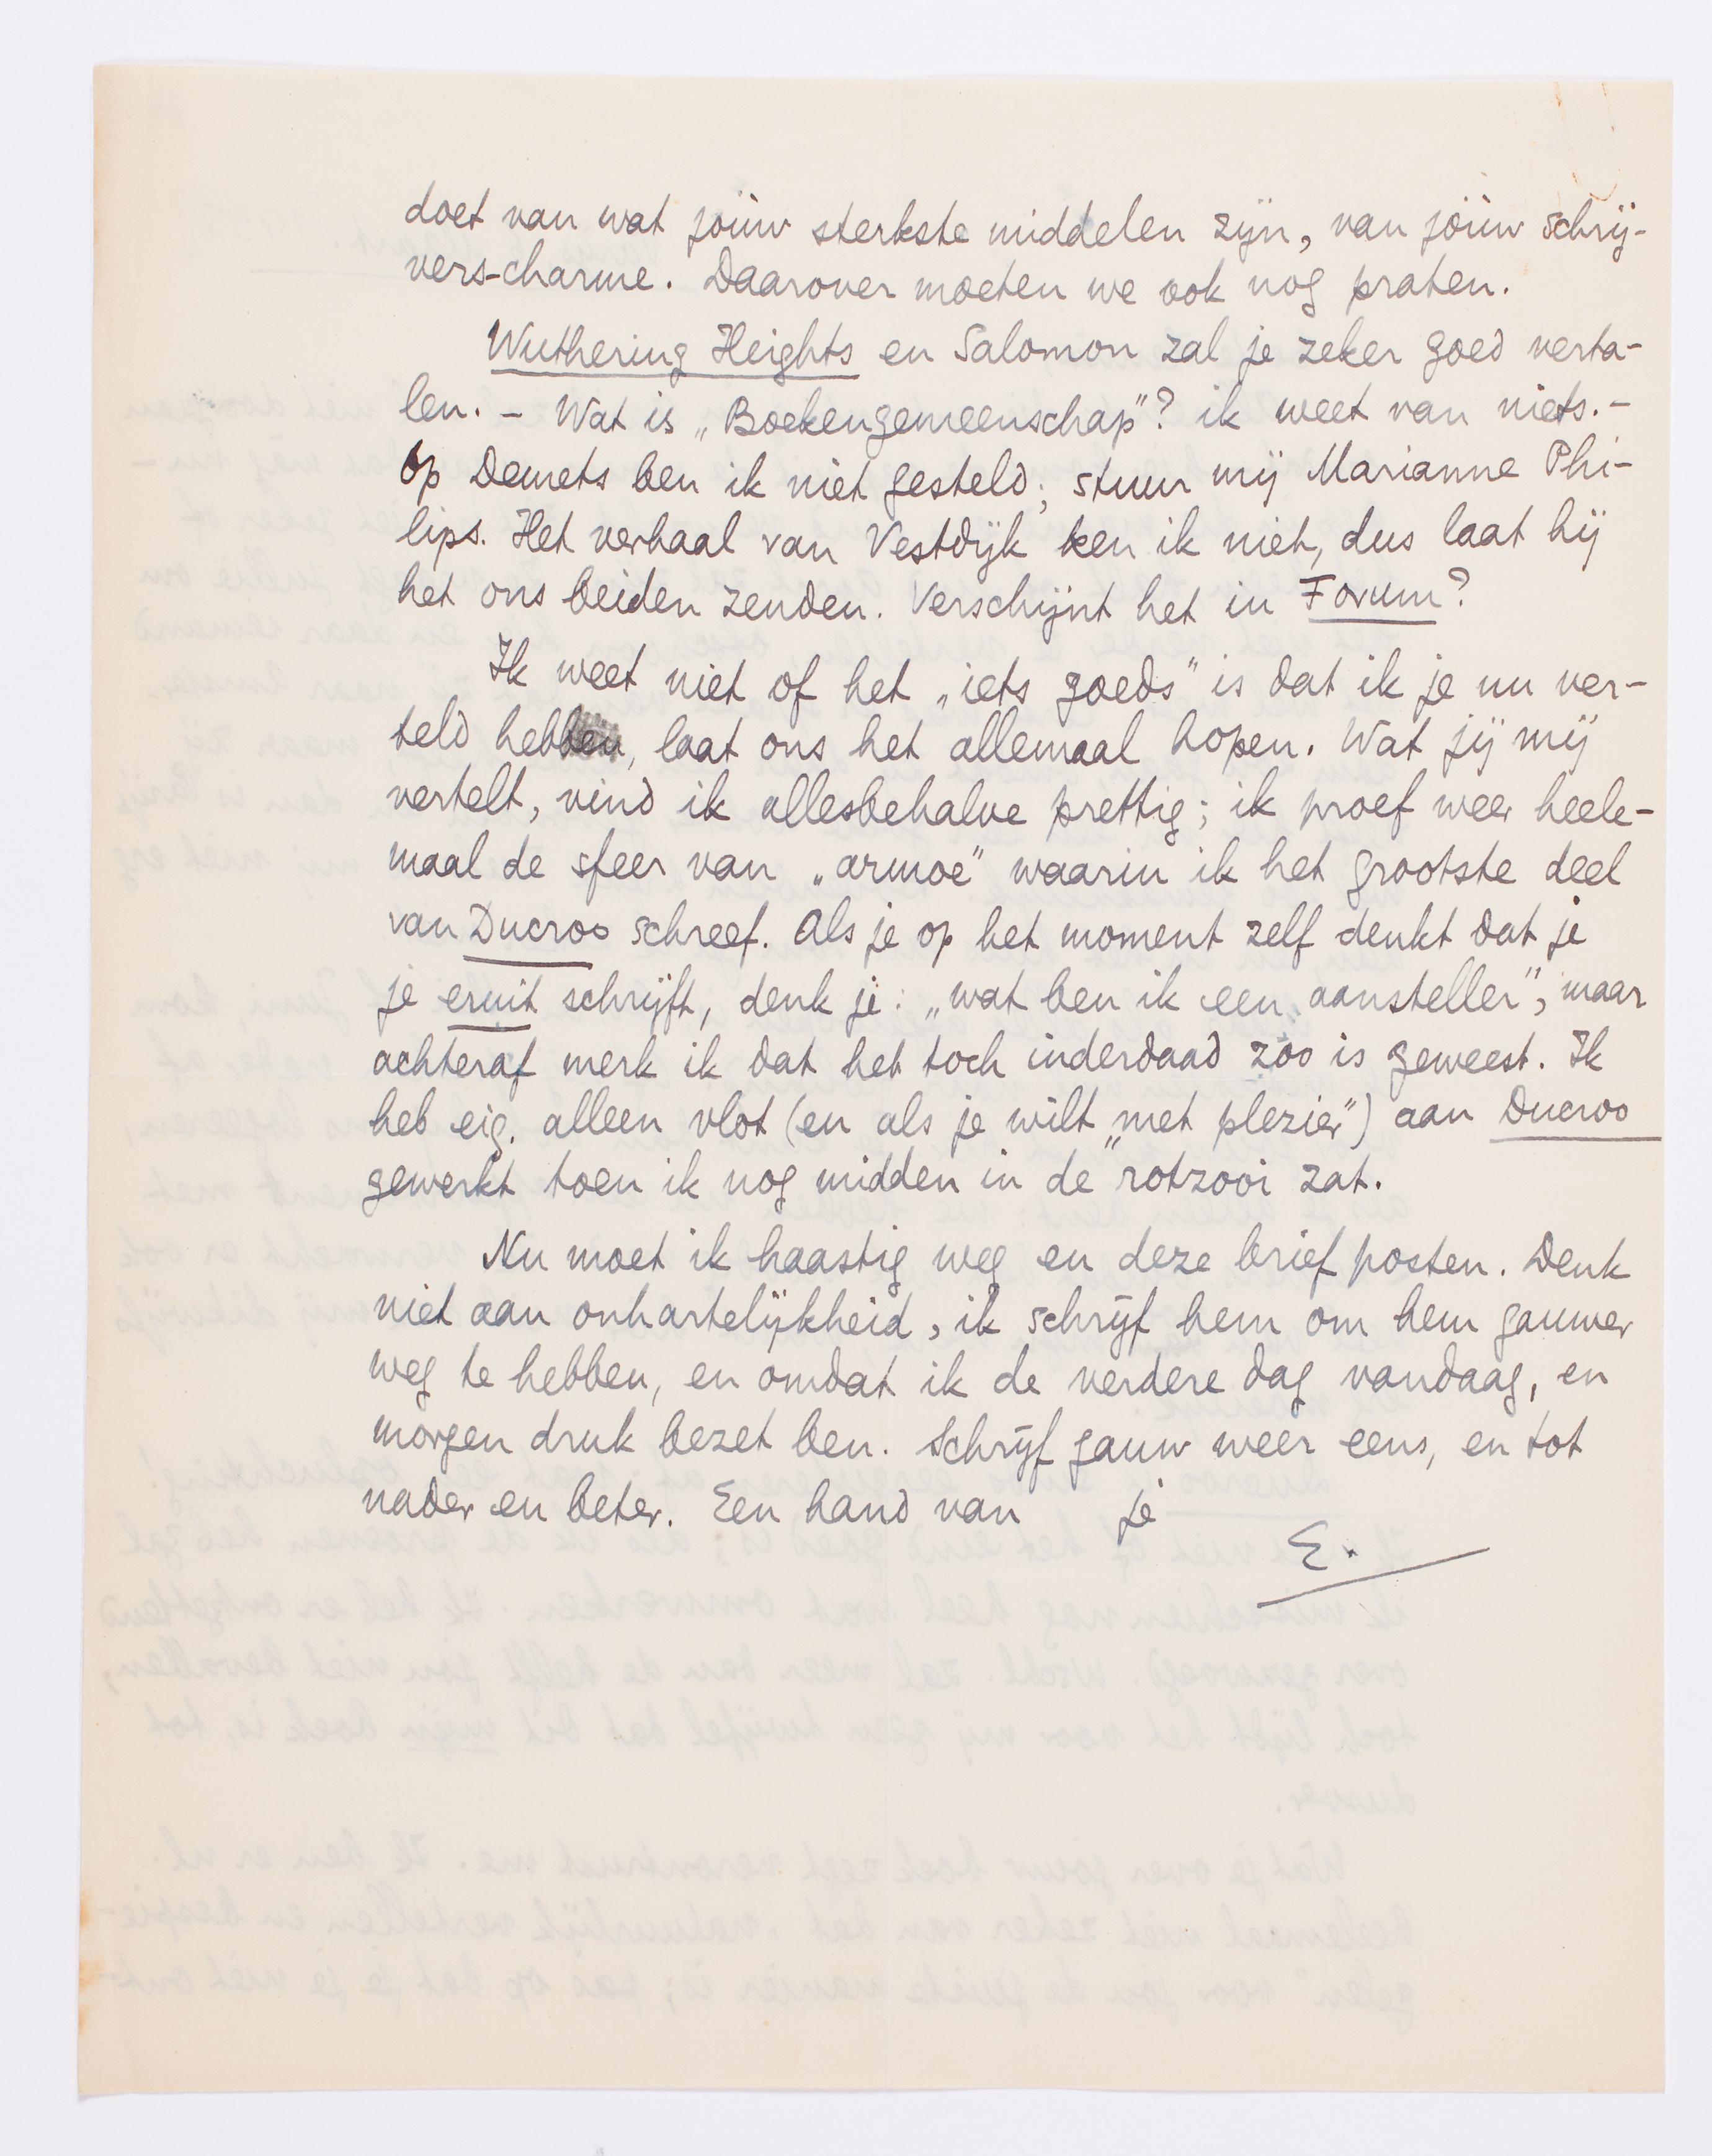 doet van wat jóúw sterkste middelen zijn, van jóúw schrij-
vers-charme. Daarover moeten we ook nog praten.
Wuthering Heights en Salomon zal je zeker goed verta-
len. – Wat is „Boekengemeenschap"? ik weet van niets. –
Op Demets ben ik niet gesteld; stuur mij Marianne Phi-
lips. Het verhaal van Vestdijk ken ik niet, dus laat hij
het ons beiden zenden. Verschijnt het in Forum?
Ik weet niet of het „iets goeds" is dat ik je nu ver-
teld hebben, laat ons het allemaal hopen. Wat jij mij
vertelt, vind ik allesbehalve prettig; ik proef weer heele-
maal de sfeer van „armoe" waarin ik het grootste deel
van Ducroo schreef. Als je op het moment zelf denkt dat je
je eruit schrijft, denk je: „wat ben ik een aansteller", maar
achteraf merk ik dat het toch inderdaad zóó is geweest. Ik
heb eig. alleen vlot (en als je wilt „met plezier") aan Ducroo
gewerkt toen ik nog midden in de rotzooi zat.
Nu moet ik haastig weg en deze brief posten. Denk
niet aan onhartelijkheid, ik schrijf hem om hem gauwer
weg te hebben, en omdat ik de verdere dag vandaag, en
morgen druk bezet ben. Schrijf gauw weer eens, en tot
nader en beter. Een hand van je
E.